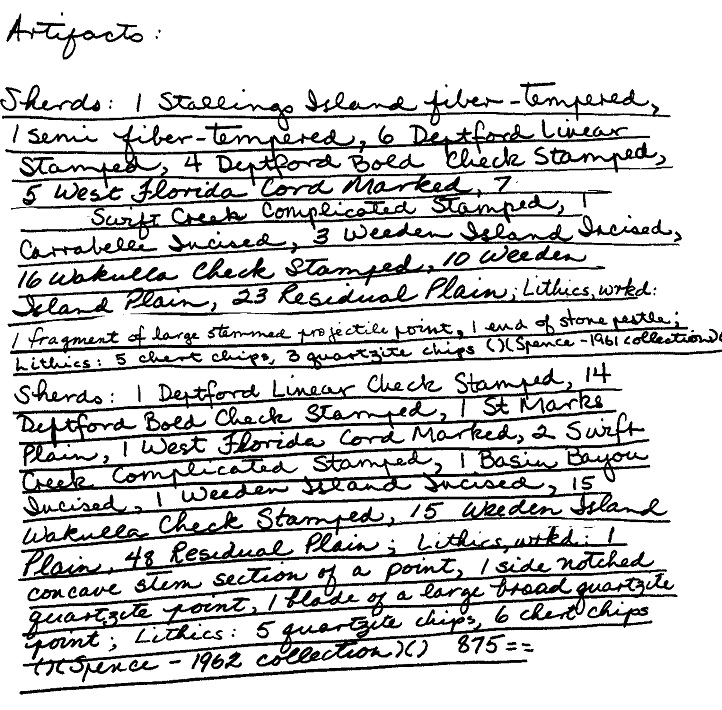 Artifacts:
Sherds: 1 Stallings Island fiber-tempered,
1 semi fiber-tempered, 6 Deptford Linear
Stamped, 4 Deptford Bold Check Stamped,
5 West Florida Cord Marked, 7
Swift Creek Complicated Stamped, 1
Carrabelle Incised, 3 Weeden Island Incised,
16 Wakulla Check Stamped, 10 Weeden
Island Plain, 23 Residual Plain; Lithics, wrkd:
1 fragment of large stemmed projectile point, 1 end of stone pestle;
Lithics: 5 chert chips, 3 quartzite chips ()(Spence - 1961 collection)(
Sherds: 1 Deptford Linear Check Stamped, 14
Deptford Bold Check Stamped, 1 St Marks
Plain, 1 West Florida Cord Marked, 2 Swift
Creek Complicated Stamped, 1 Basin Bayou
Incised, 1 Weeden Island Incised, 15
Wakulla Check Stamped, 15 Weeden Island
Plain, 48 Residual Plain; Lithics, wrkd: 1
concave stem section of a point, 1 side notched
quartzite point, 1 blade of a large broad quartzite
point; Lithics: 5 quartzite chips, 6 chert chips
()(Spence - 1962 collection)() 875==